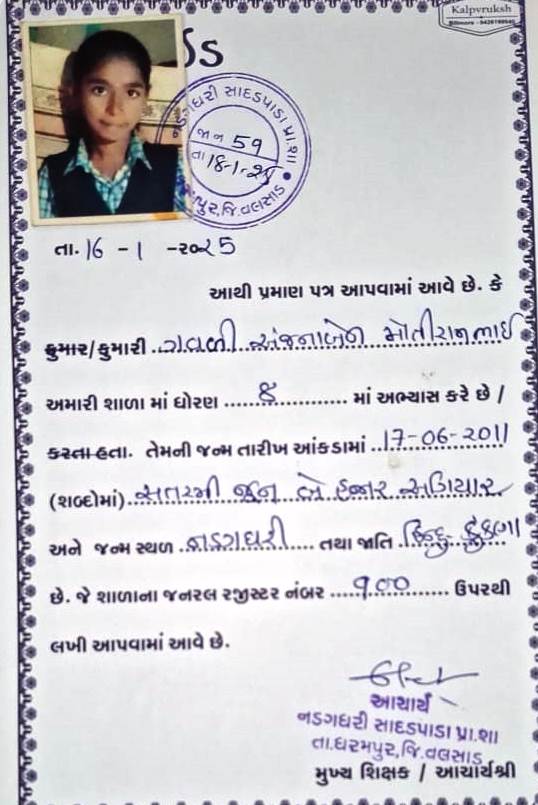 Kalpvruksh
Ss
નડગધરી સાદડપાડા પ્રા.શા
જા ન 59
તા 18-1-25
ધરમપુર,જિ.વલસાડ
તા. 16 - 1 -૨૦૨5
આથી પ્રમાણ પત્ર આપવામાં આવે છે. કે
કુમાર/કુમારી ગવળી અંજનાબેન મોતીરામભાઈ
અમારી શાળા માં ધોરણ ........ ૪ ........ માં અભ્યાસ કરે છે /
કરતા હતા. તેમની જન્મ તારીખ આંકડામાં ..17-06-2011
(શબ્દોમાં)..સતરમી જુન બે હજાર અગિયાર
અને જન્મ સ્થળ ..નડગધરી.... તથા જાતિ હિન્દુ-કુંકણા
છે. જે શાળાના જનરલ રજીસ્ટર નંબર ....૧00........ ઉપરથી
લખી આપવામાં આવે છે.
આચાર્ય
નડગધરી સાદડપાડા પ્રા.શા
તા.ધરમપુર,જિ.વલસાડ
મુખ્ય શિક્ષક / આચાર્યશ્રી